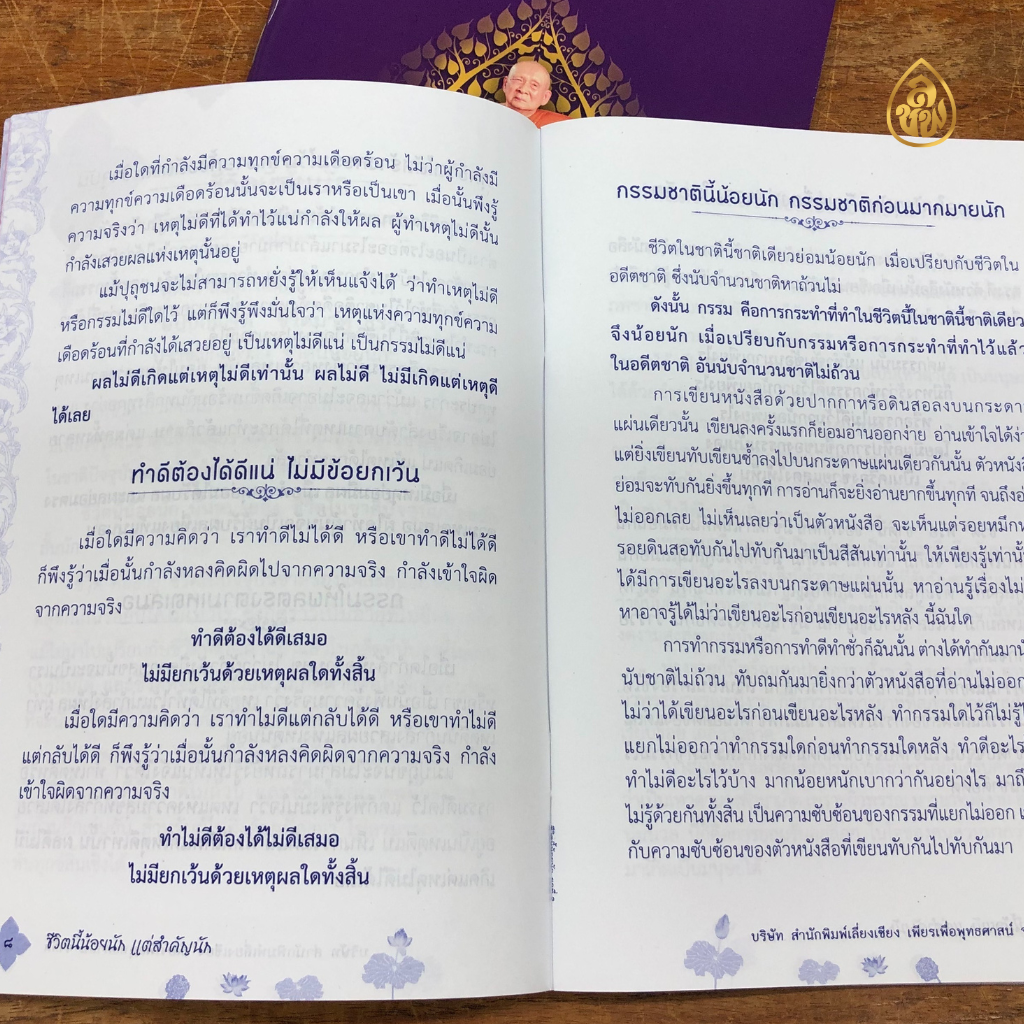 เมื่อใดที่กำลังมีความทุกข์ความเดือดร้อน ไม่ว่าผู้กำลังมี
ความทุกข์ความเดือดร้อนนั้นจะเป็นเราหรือเป็นเขา เมื่อนั้นพึงรู้
ความจริงว่า เหตุไม่ดีที่ได้ทำไว้แน่กำลังให้ผล ผู้ทำเหตุไม่ดีนั้น
กำลังเสวยผลแห่งเหตุนั้นอยู่
แม้ปุถุชนจะไม่สามารถหยั่งรู้ให้เห็นแจ้งได้ ว่าทำเหตุไม่ดี
หรือกรรมไม่ดีใดไว้ แต่ก็พึงรู้พึงมั่นใจว่า เหตุแห่งความทุกข์ความ
เดือดร้อนที่กำลังได้เสวยอยู่ เป็นเหตุไม่ดีแน่ เป็นกรรมไม่ดีแน่
ผลไม่ดีเกิดแต่เหตุไม่ดีเท่านั้น ผลไม่ดี ไม่มีเกิดแต่เหตุดี
ได้เลย
ทำดีต้องได้ดีแน่ ไม่มีข้อยกเว้น
เมื่อใดมีความคิดว่า เราทำดีไม่ได้ดี หรือเขาทำดีไม่ได้ดี
ก็พึงรู้ว่าเมื่อนั้นกำลังหลงคิดผิดไปจากความจริง กำลังเข้าใจผิด
จากความจริง
ทำดีต้องได้ดีเสมอ
ไม่มียกเว้นด้วยเหตุผลใดทั้งสิ้น
เมื่อใดมีความคิดว่า เราทำไม่ดีแต่กลับได้ดี หรือเขาทำไม่ดี
แต่กลับได้ดี ก็พึงรู้ว่าเมื่อนั้นกำลังหลงคิดผิดจากความจริง กำลัง
เข้าใจผิดจากความจริง
ทำไม่ดีต้องได้ไม่ดีเสมอ
ไม่มียกเว้นด้วยเหตุผลใดทั้งสิ้น
๘ ชีวิตนี้น้อยนัก แต่สำคัญนัก
กรรมชาตินี้น้อยนัก กรรมชาติก่อนมากมายนัก
ชีวิตในชาตินี้ชาติเดียวย่อมน้อยนัก เมื่อเปรียบกับชีวิตใน
อดีตชาติ ซึ่งนับจำนวนชาติหาถ้วนไม่
ดังนั้น กรรม คือการกระทำที่ทำในชีวิตนี้ในชาตินี้ชาติเดียว
จึงน้อยนัก เมื่อเปรียบกับกรรมหรือการกระทำที่ทำไว้แล้ว
ในอดีตชาติ อันนับจำนวนชาติไม่ถ้วน
การเขียนหนังสือด้วยปากกาหรือดินสอลงบนกระดา
แผ่นเดียวนั้น เขียนลงครั้งแรกก็ย่อมอ่านออกง่าย อ่านเข้าใจได้ง่า
แต่ยิ่งเขียนทับเขียนซ้ำลงไปบนกระดาษแผ่นเดียวกันนั้น ตัวหนังสื
ย่อมจะทับกันยิ่งขึ้นทุกที การอ่านก็จะยิ่งอ่านยากขึ้นทุกที จนถึงอ่
ไม่ออกเลย ไม่เห็นเลยว่าเป็นตัวหนังสือ จะเห็นแต่รอยหมึกห
รอยดินสอทับกันไปทับกันมาเป็นสีสันเท่านั้น ให้เพียงรู้เท่านั้
ได้มีการเขียนอะไรลงบนกระดาษแผ่นนั้น หาอ่านรู้เรื่องไม่
หาอาจรู้ได้ไม่ว่าเขียนอะไรก่อนเขียนอะไรหลัง นี้ฉันใด
การทำกรรมหรือการทำดีทำชั่วก็ฉันนั้น ต่างได้ทำกันมานั
นับชาติไม่ถ้วน ทับถมกันมายิ่งกว่าตัวหนังสือที่อ่านไม่ออก
ไม่ว่าได้เขียนอะไรก่อนเขียนอะไรหลัง ทำกรรมใดไว้ก็ไม่รู้ไ
แยกไม่ออกว่าทำกรรมใดก่อนทำกรรมใดหลัง ทำดีอะไร
ทำไม่ดีอะไรไว้บ้าง มากน้อยหนักเบากว่ากันอย่างไร มาถึ
ไม่รู้ด้วยกันทั้งสิ้น เป็นความซับซ้อนของกรรมที่แยกไม่ออก เ
กับความซับซ้อนของตัวหนังสือที่เขียนทับกันไปทับกันมา
บริษัท สำนักพิมพ์เลี่ยงเชียง เพียรเพื่อพุทธศาสน์